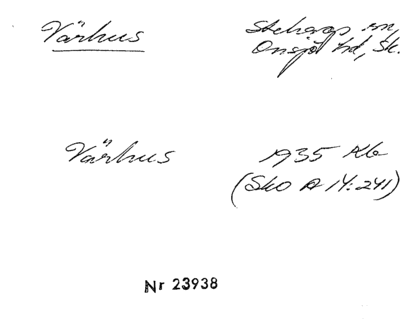 Värhus
Stehags sn,
Onsjö hd, Sk.
Värhus
1935 Kb
(Sko A 14:241)
Nr 23938